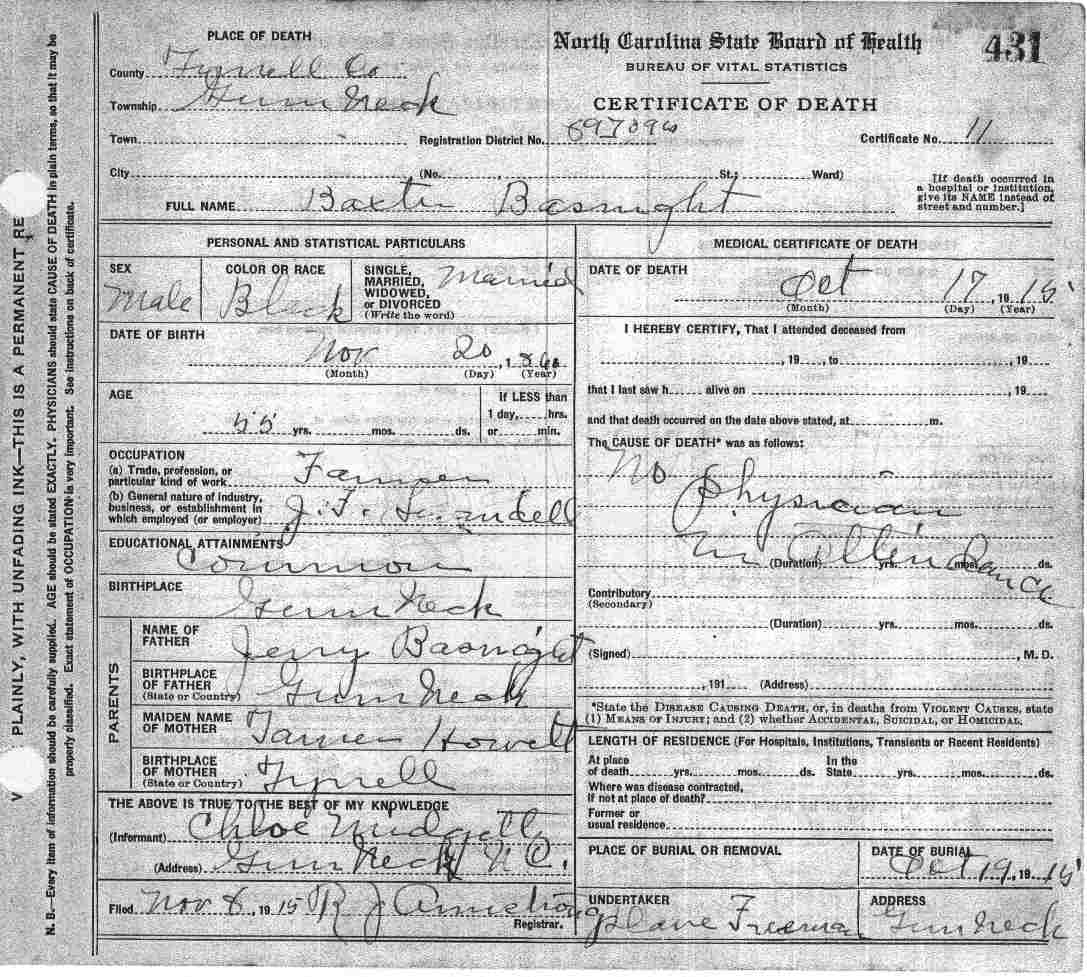 PLACE OF DEATH
North Carolina State Board of Health
431
BUREAU OF VITAL STATISTICS
County Tyrrell Co
Township Gum Neck
CERTIFICATE OF DEATH
Town
Registration District No.
Certificate No. 11
City (No. St.; Ward)
[If death occurred in a hospital or institution, give its NAME instead of street and number.]
FULL NAME Baxter Basnight
PERSONAL AND STATISTICAL PARTICULARS
SEX Male
COLOR OR RACE Black
SINGLE, MARRIED, WIDOWED, or DIVORCED (Write the word) Married
DATE OF BIRTH
Nov 20, 1860
(Month) (Day) (Year)
AGE
55 yrs. mos. ds.
If LESS than
1 day, hrs.
or min.
OCCUPATION
(a) Trade, profession, or
particular kind of work Farmer
(b) General nature of industry,
business, or establishment in
which employed (or employer) J. F. Swindell
EDUCATIONAL ATTAINMENTS
Common
BIRTHPLACE
Gum Neck
PARENTS
NAME OF
FATHER Jerry Basnight
BIRTHPLACE
OF FATHER
(State or Country) Gum Neck
MAIDEN NAME
OF MOTHER Tamer Howett
BIRTHPLACE
OF MOTHER
(State or Country) Tyrrell
THE ABOVE IS TRUE TO THE BEST OF MY KNOWLEDGE
(Informant) Chloe Midgett
(Address) Gum Neck N C.
Filed Nov 8, 1915 R J Armstrong
Registrar.
MEDICAL CERTIFICATE OF DEATH
DATE OF DEATH
Oct 17, 1915
(Month) (Day) (Year)
I HEREBY CERTIFY, That I attended deceased from
, 19 , to , 19
that I last saw h alive on , 19
and that death occurred on the date above stated, at m.
The CAUSE OF DEATH* was as follows:
No
Physician
in Attendance
(Duration) yrs. mos. ds.
Contributory
(Secondary)
(Duration) yrs. mos. ds.
(Signed) , M. D.
, 191 (Address)
*State the DISEASE CAUSING DEATH, or, in deaths from VIOLENT CAUSES, state
(1) MEANS OF INJURY; and (2) whether ACCIDENTAL, SUICIDAL, or HOMICIDAL.
LENGTH OF RESIDENCE (For Hospitals, Institutions, Transients or Recent Residents)
At place In the
of death yrs. mos. ds. State yrs. mos. ds.
Where was disease contracted,
If not at place of death?
Former or
usual residence
PLACE OF BURIAL OR REMOVAL
DATE OF BURIAL
Oct 19, 1915
UNDERTAKER
Freeman
ADDRESS
Gum Neck
V PLAINLY, WITH UNFADING INK—THIS IS A PERMANENT RE
N. B.—Every item of information should be carefully supplied. AGE should be stated EXACTLY. PHYSICIANS should state CAUSE OF DEATH in plain terms, so that it may be
properly classified. Exact statement of OCCUPATION is very important. See instructions on back of certificate.